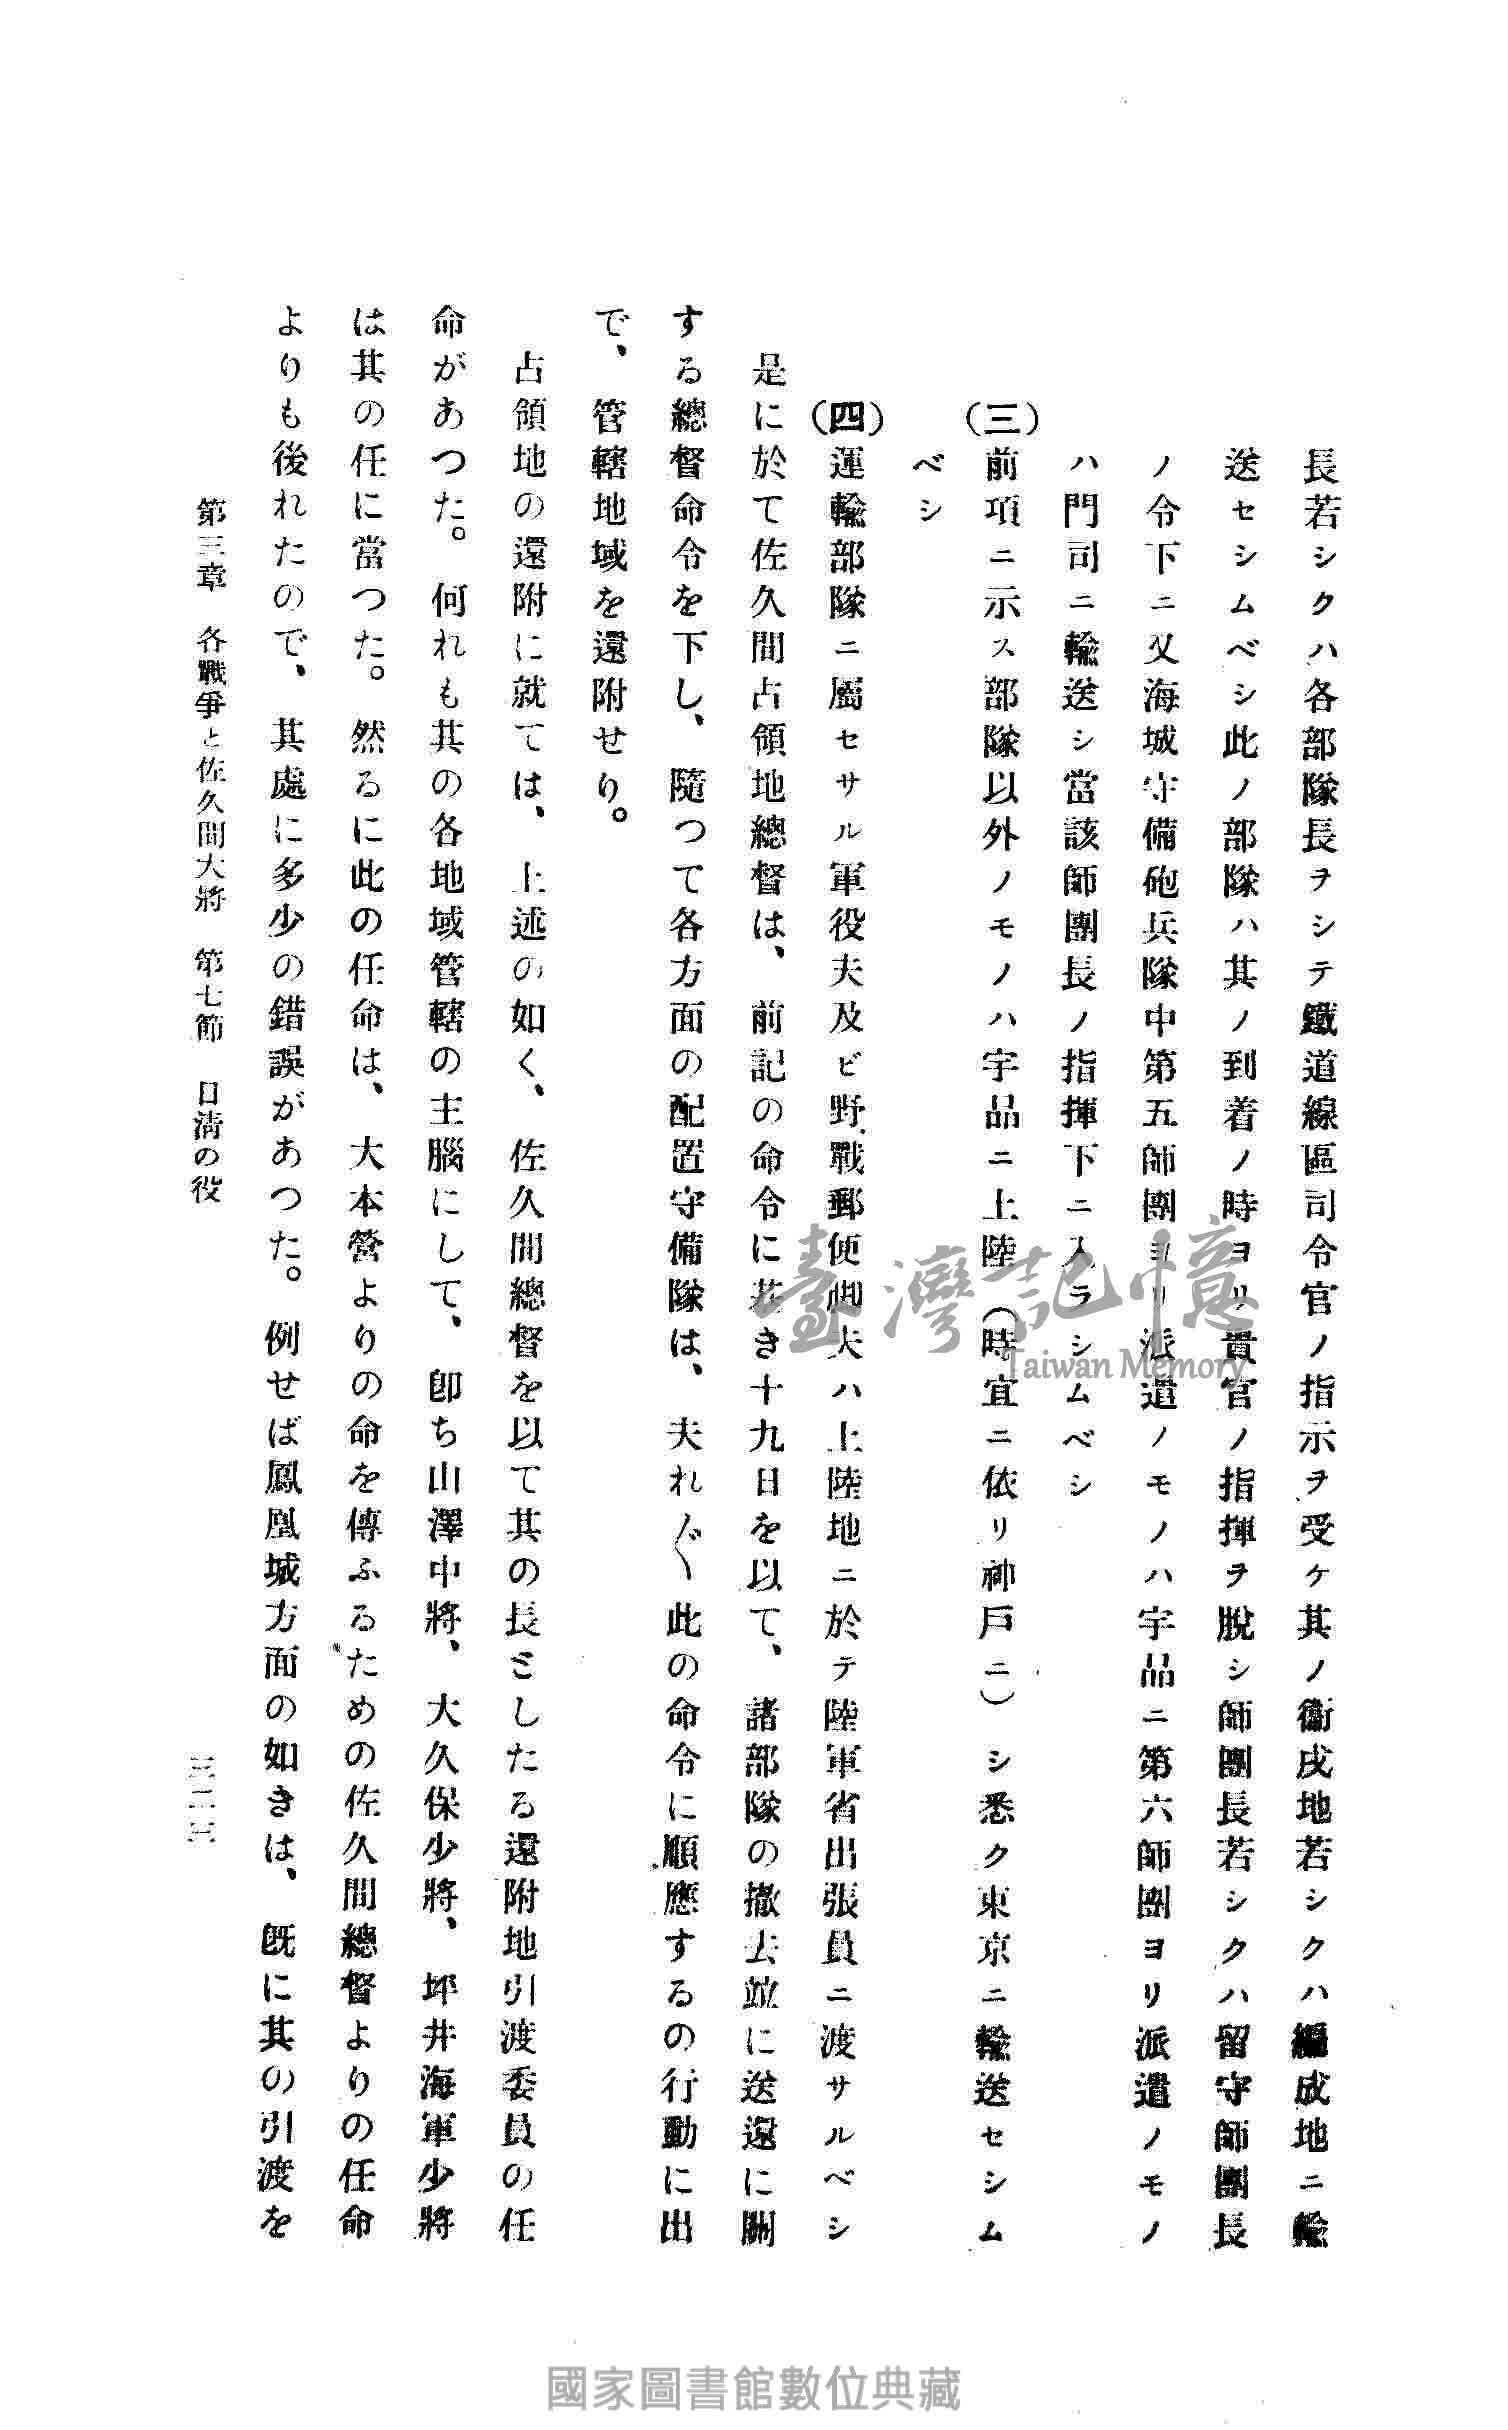 長若シクハ各部隊長ヲシテ鐵道線區司令官ノ指示ヲ受ケ其ノ衞戍地若シクハ編成地ニ輸
送セシムベシ此ノ部隊ハ其ノ到着ノ時ヨリ貴官ノ指揮ヲ脫シ師團長若シクハ留守師團長
ノ令下ニ又海城守備砲兵隊中第五師團ヨリ派遣ノモノハ宇品ニ第六師團ヨリ派遣ノモノ
ハ門司ニ輸送シ當該師團長ノ指揮下ニ入ラシムベシ
(三)前項ニ示ス部隊以外ノモノハ宇品ニ上陸(時宜ニ依リ神戶ニ)シ悉ク東京ニ輸送セシム
ベシ
(四)運輸部隊ニ屬セサル軍役夫及ビ野戰郵便脚夫ハ上陸地ニ於テ陸軍省出張員ニ渡サルベシ
是に於て佐久間占領地總督は、前記の命令に基き十九日を以て、諸部隊の撤去竝に送還に關
する總督命令を下し、隨つて各方面の配置守備隊は、夫れ〴〵此の命令に順應するの行動に出
で、管轄地域を還附せり。
占領地の還附に就ては、上述の如く、佐久間總督を以て其の長としたる還附地引渡委員の任
命があつた。何れも其の各地域管轄の主腦にして、卽ち山澤中將、大久保少將、坪井海軍少將
は其の任に當つた。然るに此の任命は、大本營よりの命を傳ふるための佐久間總督よりの任命
よりも後れたので、其處に多少の錯誤があつた。例せば鳳凰城方面の如きは、既に其の引渡を
第三章 各戰爭と佐久間大將 第七節 日淸の役
三二三
臺灣記憶
Taiwan Memory
國家圖書館數位典藏